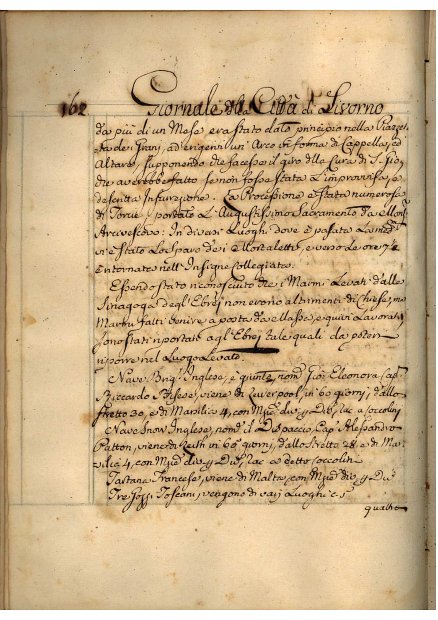 162
Giornale della Città di Livorno
da più di un Mese era stato dato principio nella Piazzet
ta dei Grani, ad erigervi un' Arco in forma di Cappella, ed
Altare, supponendo che facesse il giro della Cura di S. Gio,
che averebbe fatto se non fosse stata l'improvvisa, e
descritta Insurezione. La Processione è stata numerosa
di Torcie, portato L'Augustissimo Sacramento da Monsr
Arcivescovo: In diversi Luoghi dove è passata
vi è stato lo sparo dei Mortaletti, e verso le ore 7½
è ritornata nell'Insigne Collegiata.
Essendo stato riconosciuto che i Marmi Levati dalla
Sinagoga degl'Ebrei non erano altrimenti di Chiese, ma
Marmi fatti venire a posta da essa, e quivi Lavorati
sono stati riportati agl'Ebrei tali quali da potersi
riporre nel Luogo Levato.
Nave Brig.e Inglese, è giunta, nom.
Riccardo viene di Liverpool, in 60 giorni, dallo
stretto 30, e di Marsilia 4, con
Nave Snow Inglese, nom. il Dispaccio, Cap. Alesandro
Patton, viene di Leith in 60 giorni, dallo stretto 28, e di Mar
silia 4, con detto Soccolini
Tartana Francese, viene di Malta, con
Tre Toscani, vengono di varj Luoghi c.s
quattro